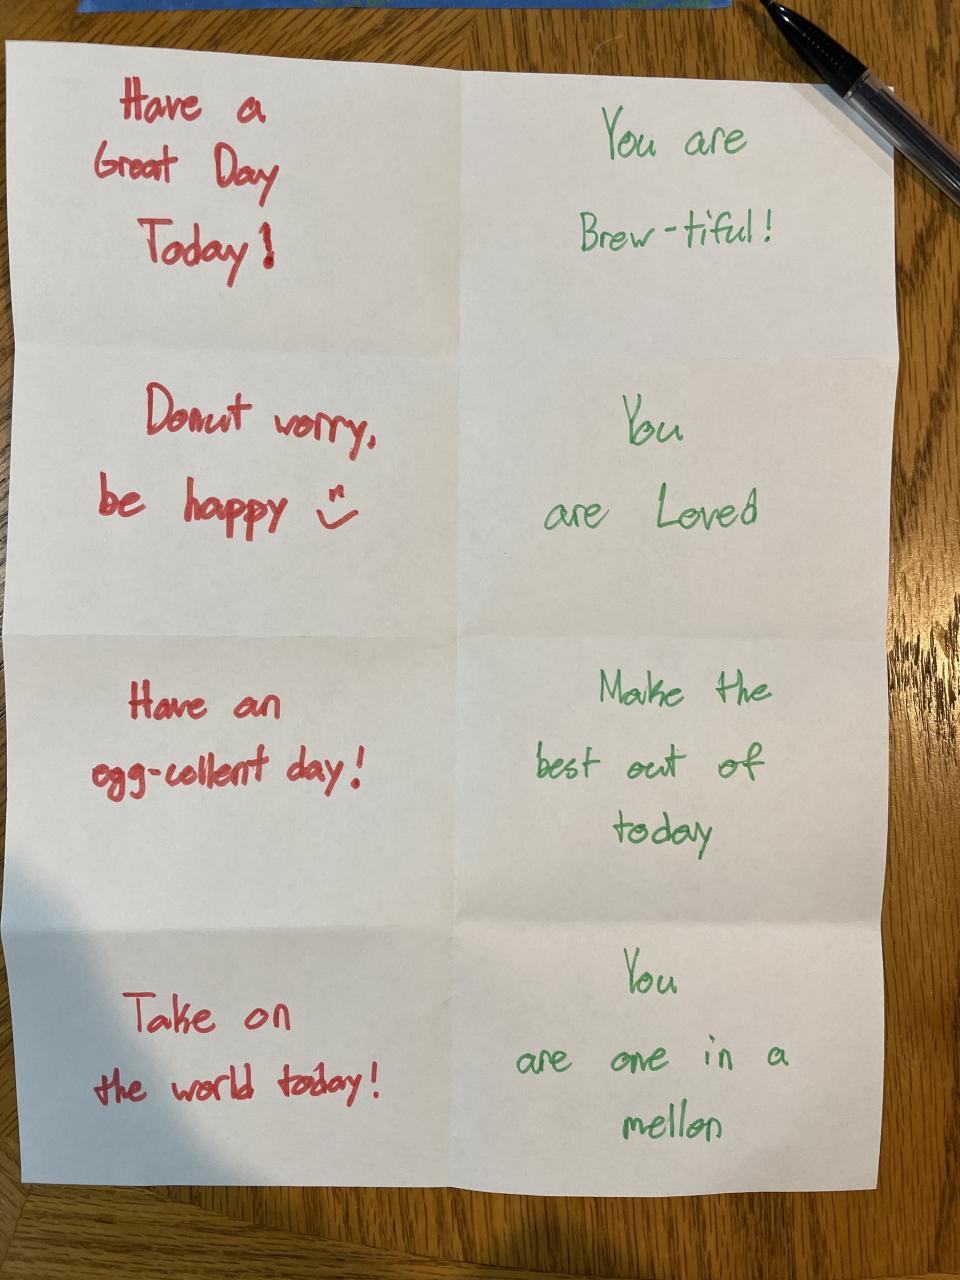 Have a
Great Day
Today!
You are
Brew-tiful!
Donut worry,
be happy
You
are Loved
Have an
egg-cellent day!
Make the
best out of
today
Take on
the world today!
You
are one in a
mellon